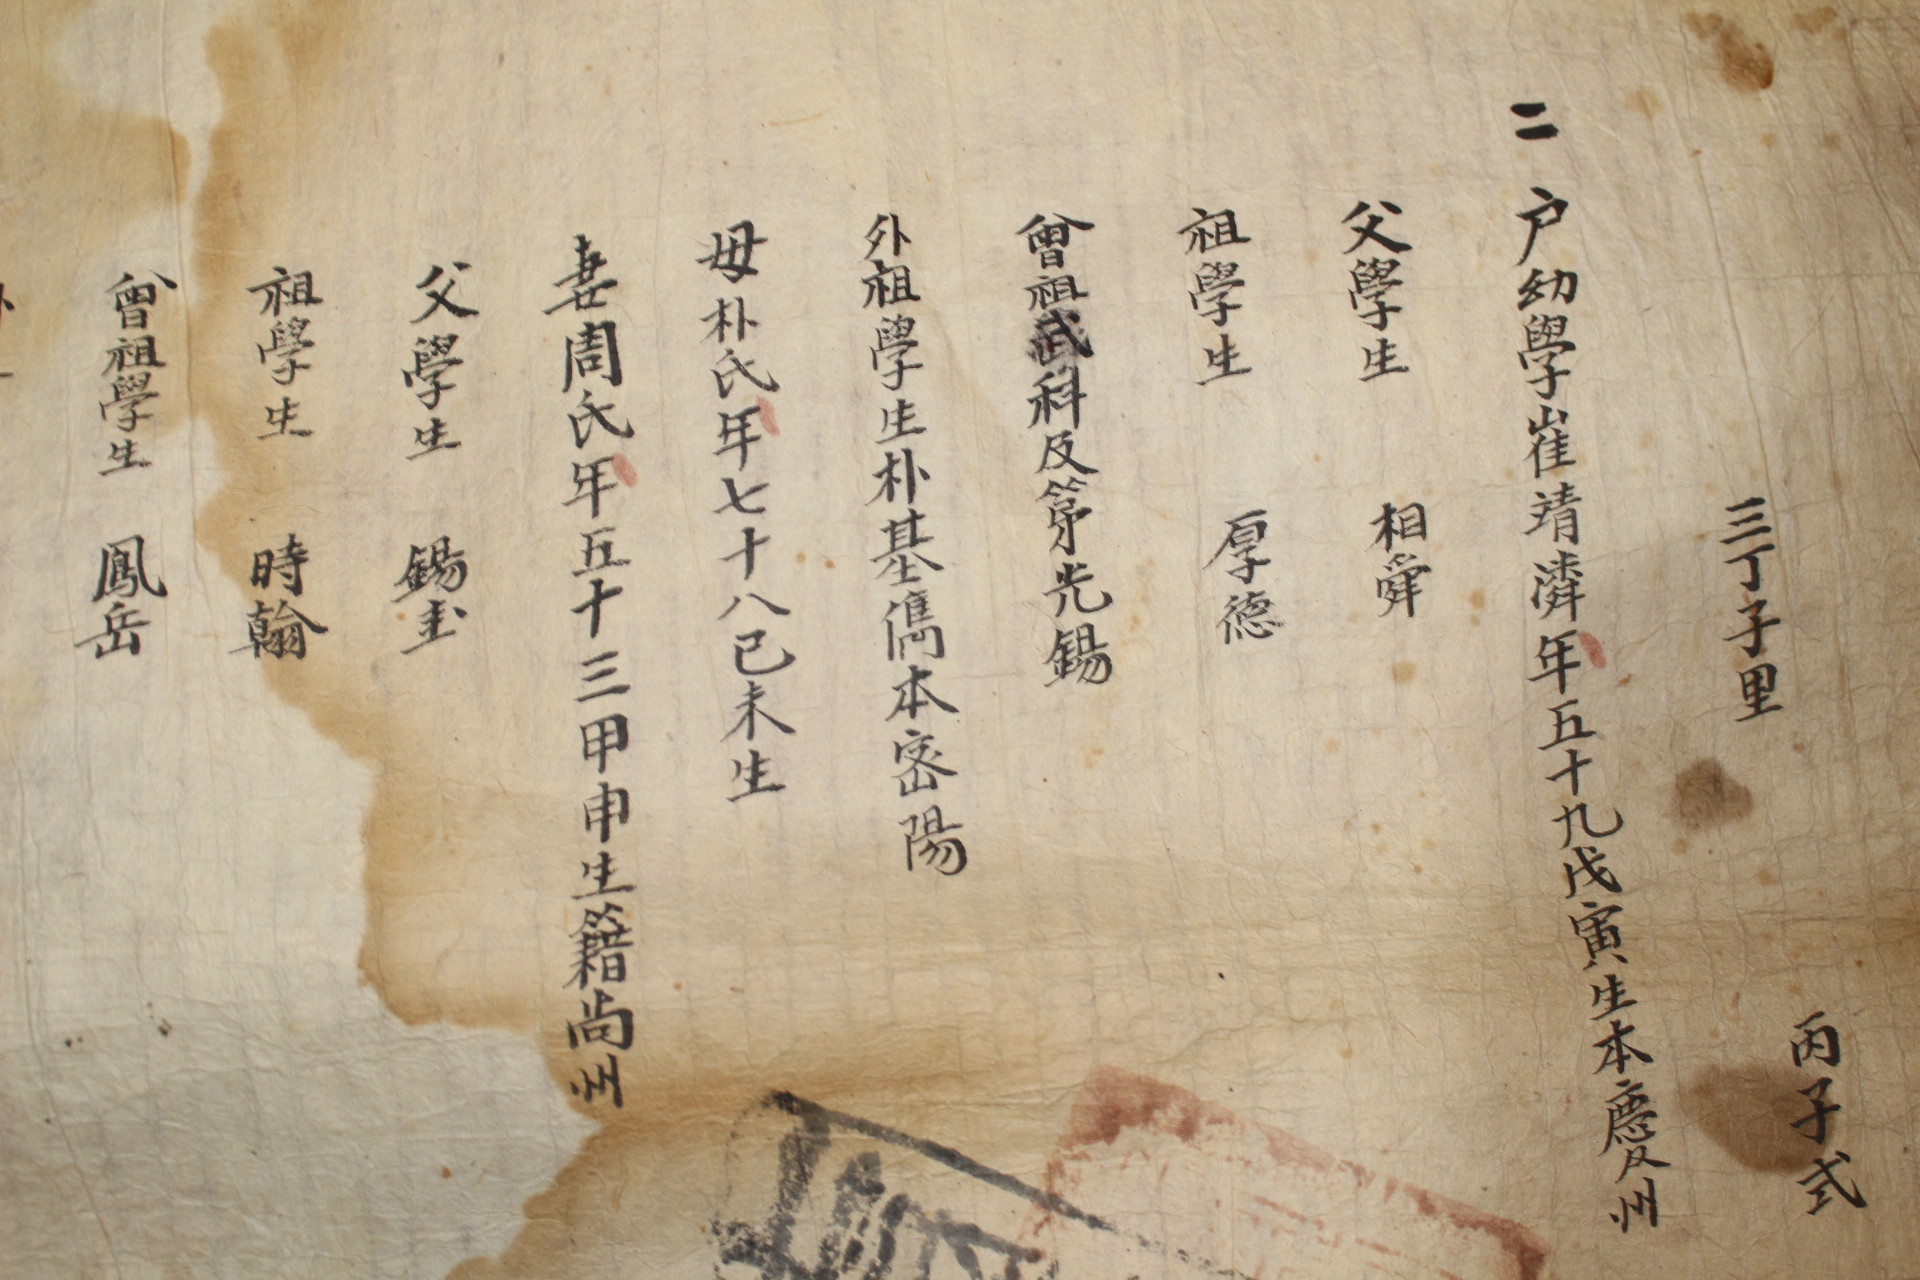 丙子式
三丁子里
二 户幼學崔靖潾年五十九戊寅生本慶州
父學生 相舜
祖學生 厚德
曾祖武科及第光錫
外祖學生朴基儁本密陽
母朴氏年七十八己未生
妻周氏年五十三甲申生籍尚州
父學生 錫圭
祖學生 時翰
曾祖學生 鳳岳